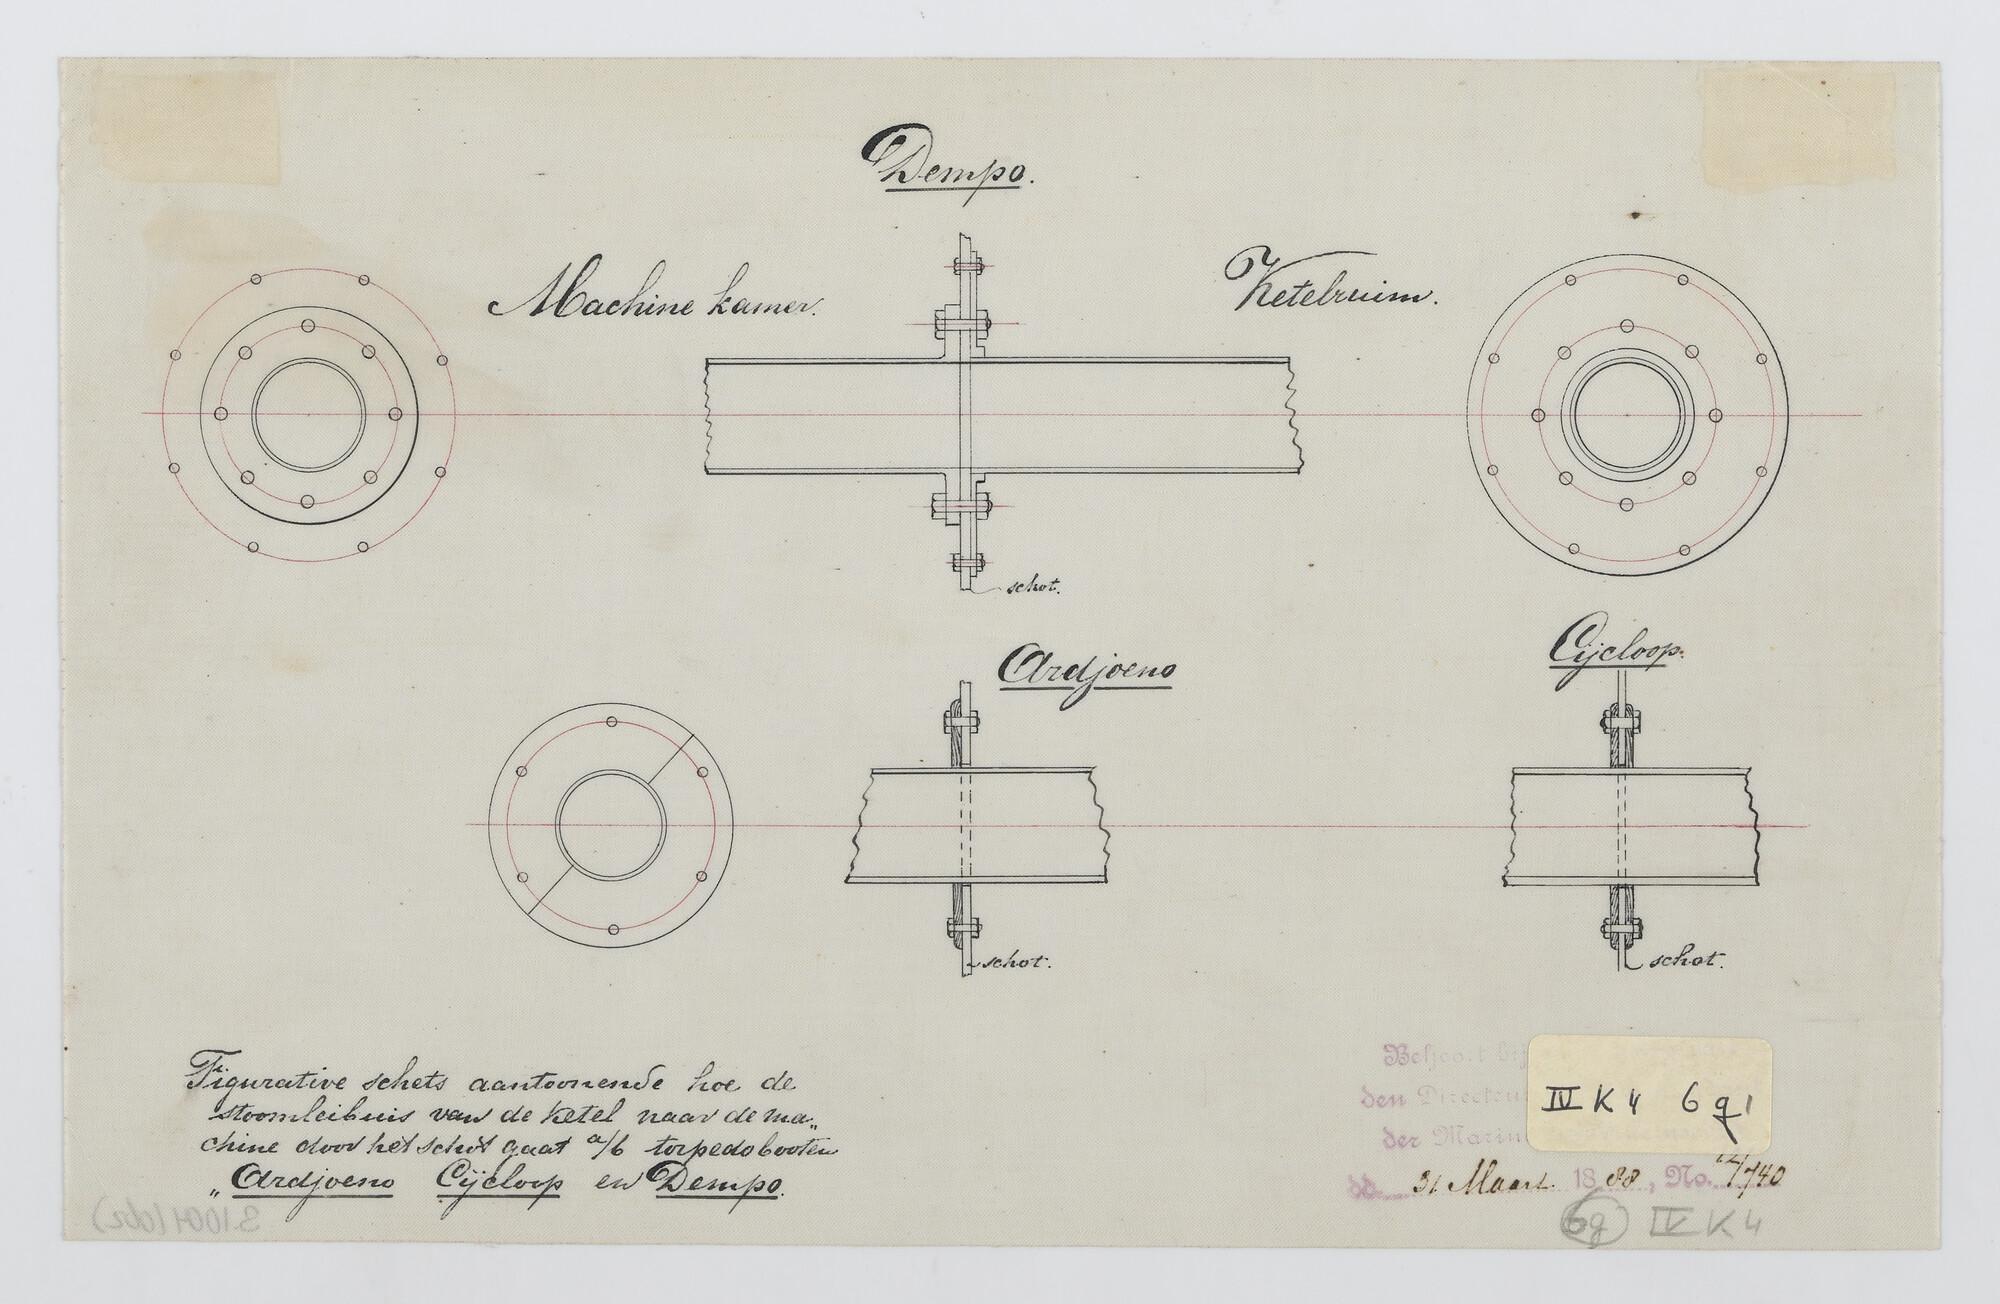 Dempo.
Machine kamer.
Ketelruim.
schot.
Ardjoeno
Cijcloop.
schot.
schot.
Figurative schets aantoonende hoe de
stoomleibuis van de ketel naar de ma„
chine door het schot gaat a/b torpedobooten
„Ardjoeno Cijcloop en Dempo.
Behoort bij
den Directeu
der Marin
dd. 31 Maart 1888, No. /740
IV K 4 6g1
6g IV K 4